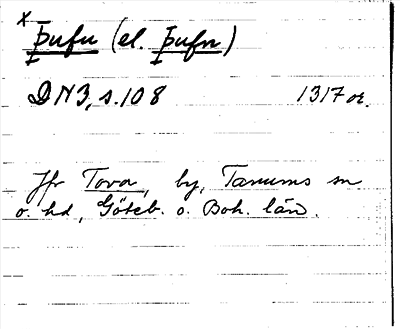 x Þufu (el. Þufn)
DN3, s. 108 1317 or.
Jfr Tova, by, Tanums sn
o. hd, Göteb. o. Boh. län.